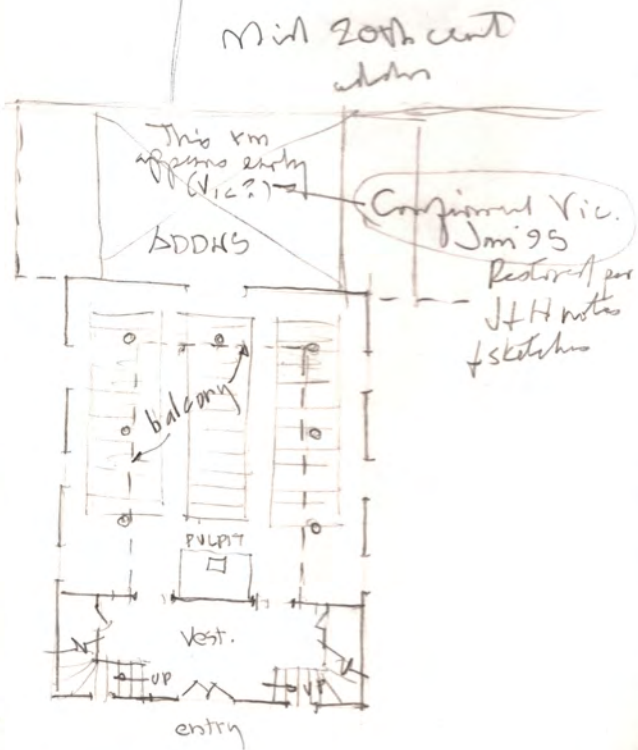 Mid 20th cent
addns
This rm
appears early
(Vic?)
ADDNS
Confirmed Vic.
Jan 95
Restored per
J+H notes
+ sketches
balcony
PULPIT
Vest.
UP
UP
entry